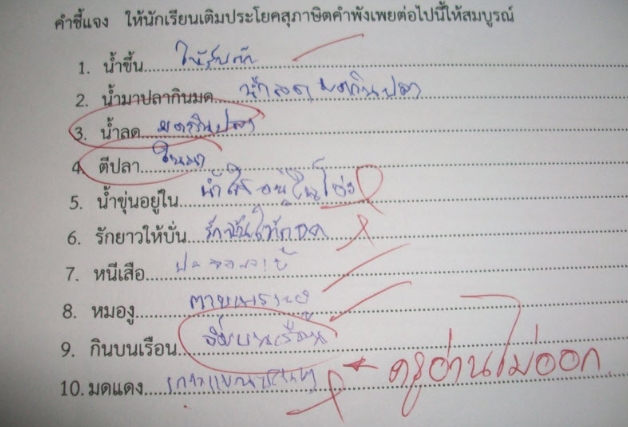 คำชี้แจง ให้นักเรียนเติมประโยคสุภาษิตคำพังเพยต่อไปนี้ให้สมบูรณ์
1. น้ำขึ้น ให้รีบตัก
2. น้ำมาปลากินมด น้ำลดมดกินปลา
3. น้ำลด มดกินปลา
4. ตีปลา ในนา
5. น้ำขุ่นอยู่ใน น้ำใสอยู่ในโอ่ง
6. รักยาวให้บั่น รักฉันให้กอด
7. หนีเสือ
8. หมองู ตายเพราะงู
9. กินบนเรือน
10. มดแดง
ครูอ่านไม่ออก